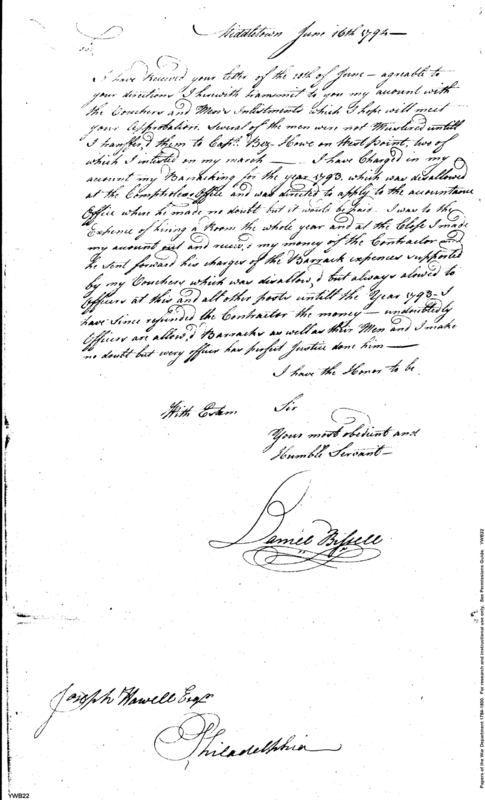 Middletown June 16th 1794—
Sir
I have Received your letter of the 10th of June – agreable to
your directions I herewith transmit to you my account with
the Vouchers and Men's Inlistments which I hope will meet
your Approbation. Several of the men were not Mustered untill
I transfer,d them to Capt. Bez. Howe on West Point, two of
which I inlisted on my march — I have Charged in my
account my Barracking for the year 1793. which was disallowed
at the Comptholers Office and was directed to apply to the accountants
Office where he made no doubt but it would be paid. I was to the
Expence of hireing a Room the whole year and at the Close I made
my account out and receiv,d my money of the Contractor and
he sent forward his charges of the Barrack expences supported
by my Vouchers which was disallow,d but always alowed to
Officers at this and all other posts untill the Year 1793–I
have Since refunded the Contractor the money – undoubtedly
Officers are allow,d Barracks as well as their Men and I make
no doubt but every officer has perfect Justice done him —
I have the Honor to be
With Esteem Sir
Your most obedient and
Humble Servant—
Daniel Bissell
Joseph Howell Esqr
Philadelphia
YWB22
Papers of the War Department 1784-1800. For research and instructional use only. See Permissions Guide. YWB22